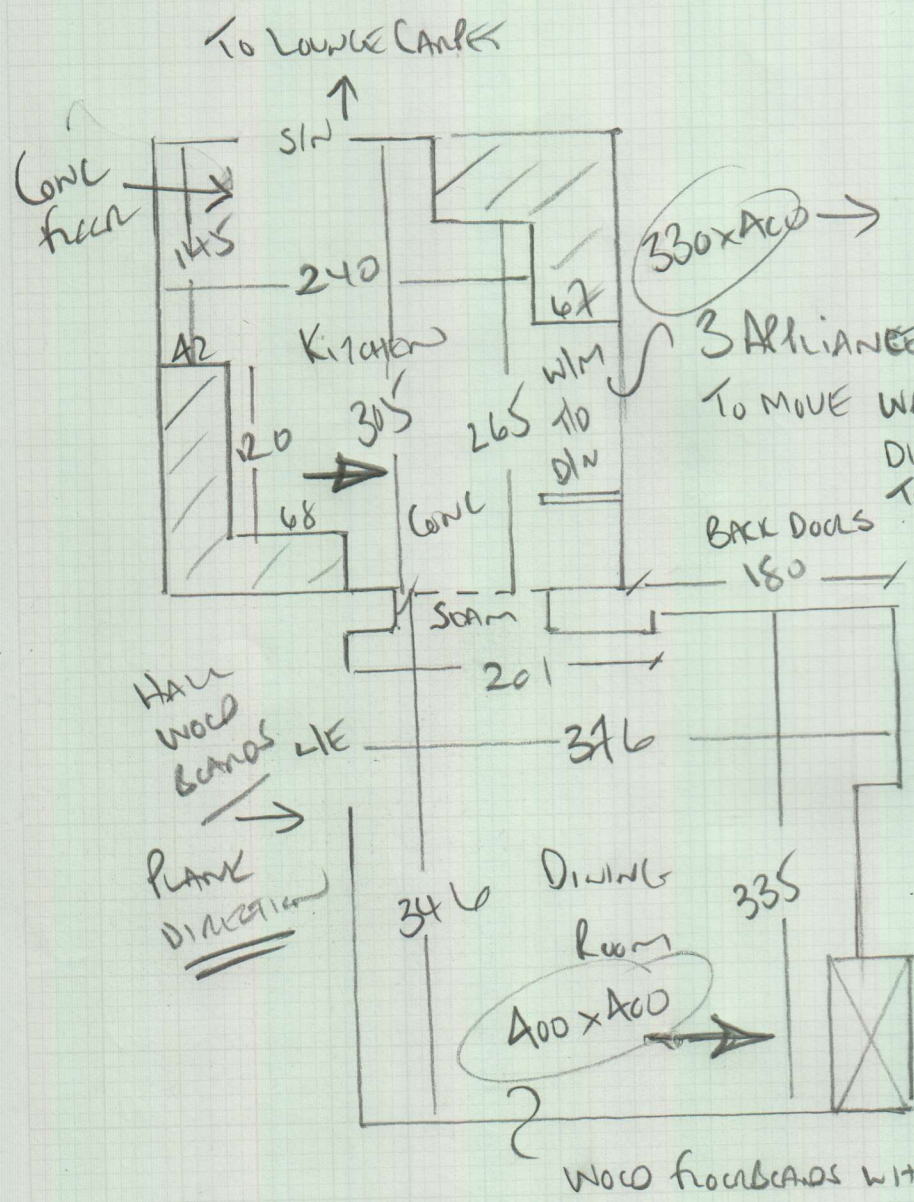 TO LOUNGE CARPET
S/N
CONC
FLOOR
145
240
330x400
42
KITCHEN
67
3 APPLIANCE
TO MOVE WA
DI
T
W/M
T/D
D/N
120
305
265
68
CONC
BACK DOORS
180
SEAM
201
HALL
WOOD
BOARDS
L/E
376
PLANK
DIRECTION
346
DINING
ROOM
335
400x400
WOOD FLOORBOARDS WIT